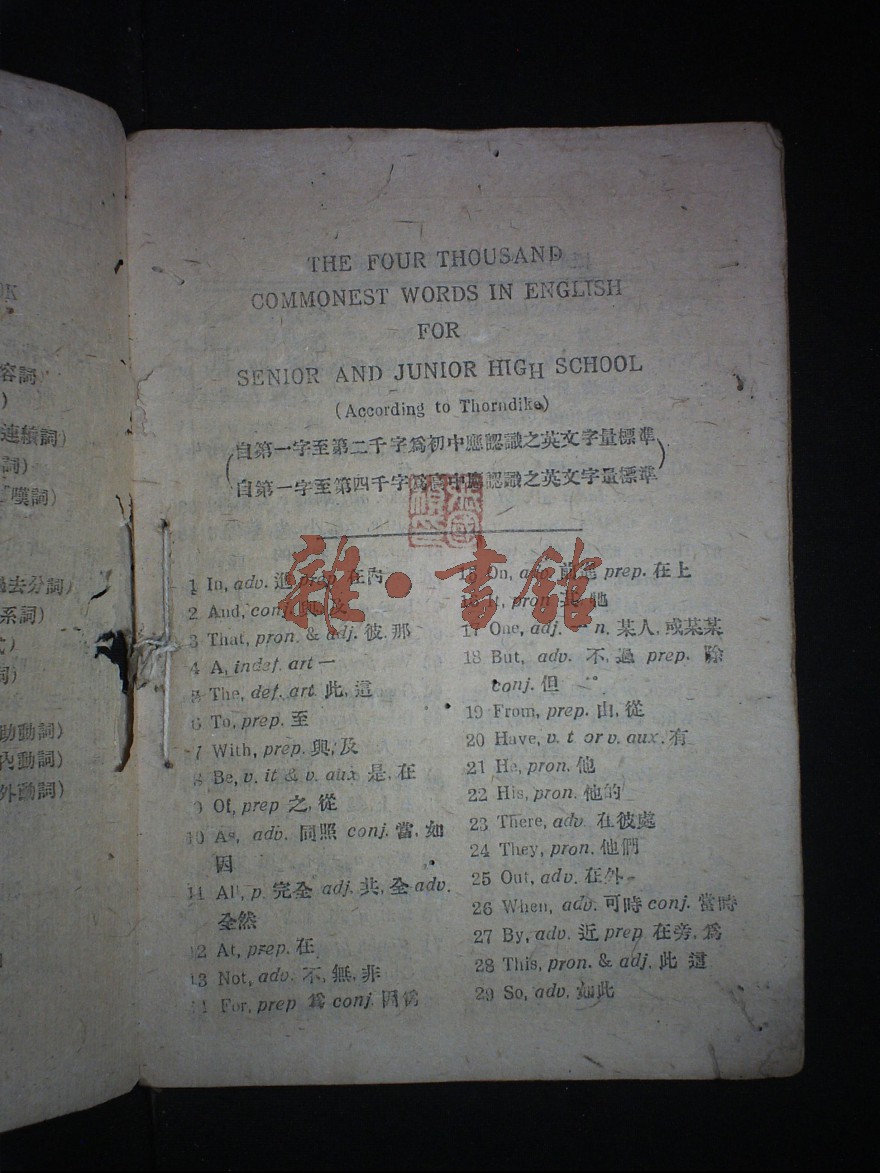 OK
容詞
)
連續詞)
詞)
嘆詞)
過去分詞)
系詞)
式)
詞)
助動詞)
內動詞)
外動詞)
THE FOUR THOUSAND
COMMONEST WORDS IN ENGLISH
FOR
SENIOR AND JUNIOR HIGH SCHOOL
(According to Thorndike)
(自第一字至第二千字為初中應認識之英文字量標準
自第一字至第四千字為高中應認識之英文字量標準)
雜·書館
1 In, adv. 進 prep. 在內
2 And, conj. 與, 及
3 That, pron. & adj. 彼, 那
4 A, indef. art 一
5 The, def. art 此, 這
6 To, prep. 至
7 With, prep. 與, 及
8 Be, v. it & v. aux 是, 在
9 Of, prep 之, 從
10 As, adv. 同照 conj. 當, 如
因
11 All, p. 完全 adj. 共, 全 adv.
全然
12 At, prep. 在
13 Not, adv. 不, 無, 非
14 For, prep 為 conj. 因為
15 On, adv. 前進 prep. 在上
16 It, pron 其, 牠
17 One, adj. 一 n. 某人, 或某某
18 But, adv. 不, 過 prep. 除
conj. 但
19 From, prep. 由, 從
20 Have, v. t or v. aux. 有
21 He, pron. 他
22 His, pron. 他的
23 There, adv. 在彼處
24 They, pron. 他們
25 Out, adv. 在外
26 When, adv. 可時 conj. 當時
27 By, adv. 近 prep 在旁, 為
28 This, pron. & adj. 此 這
29 So, adv. 如此